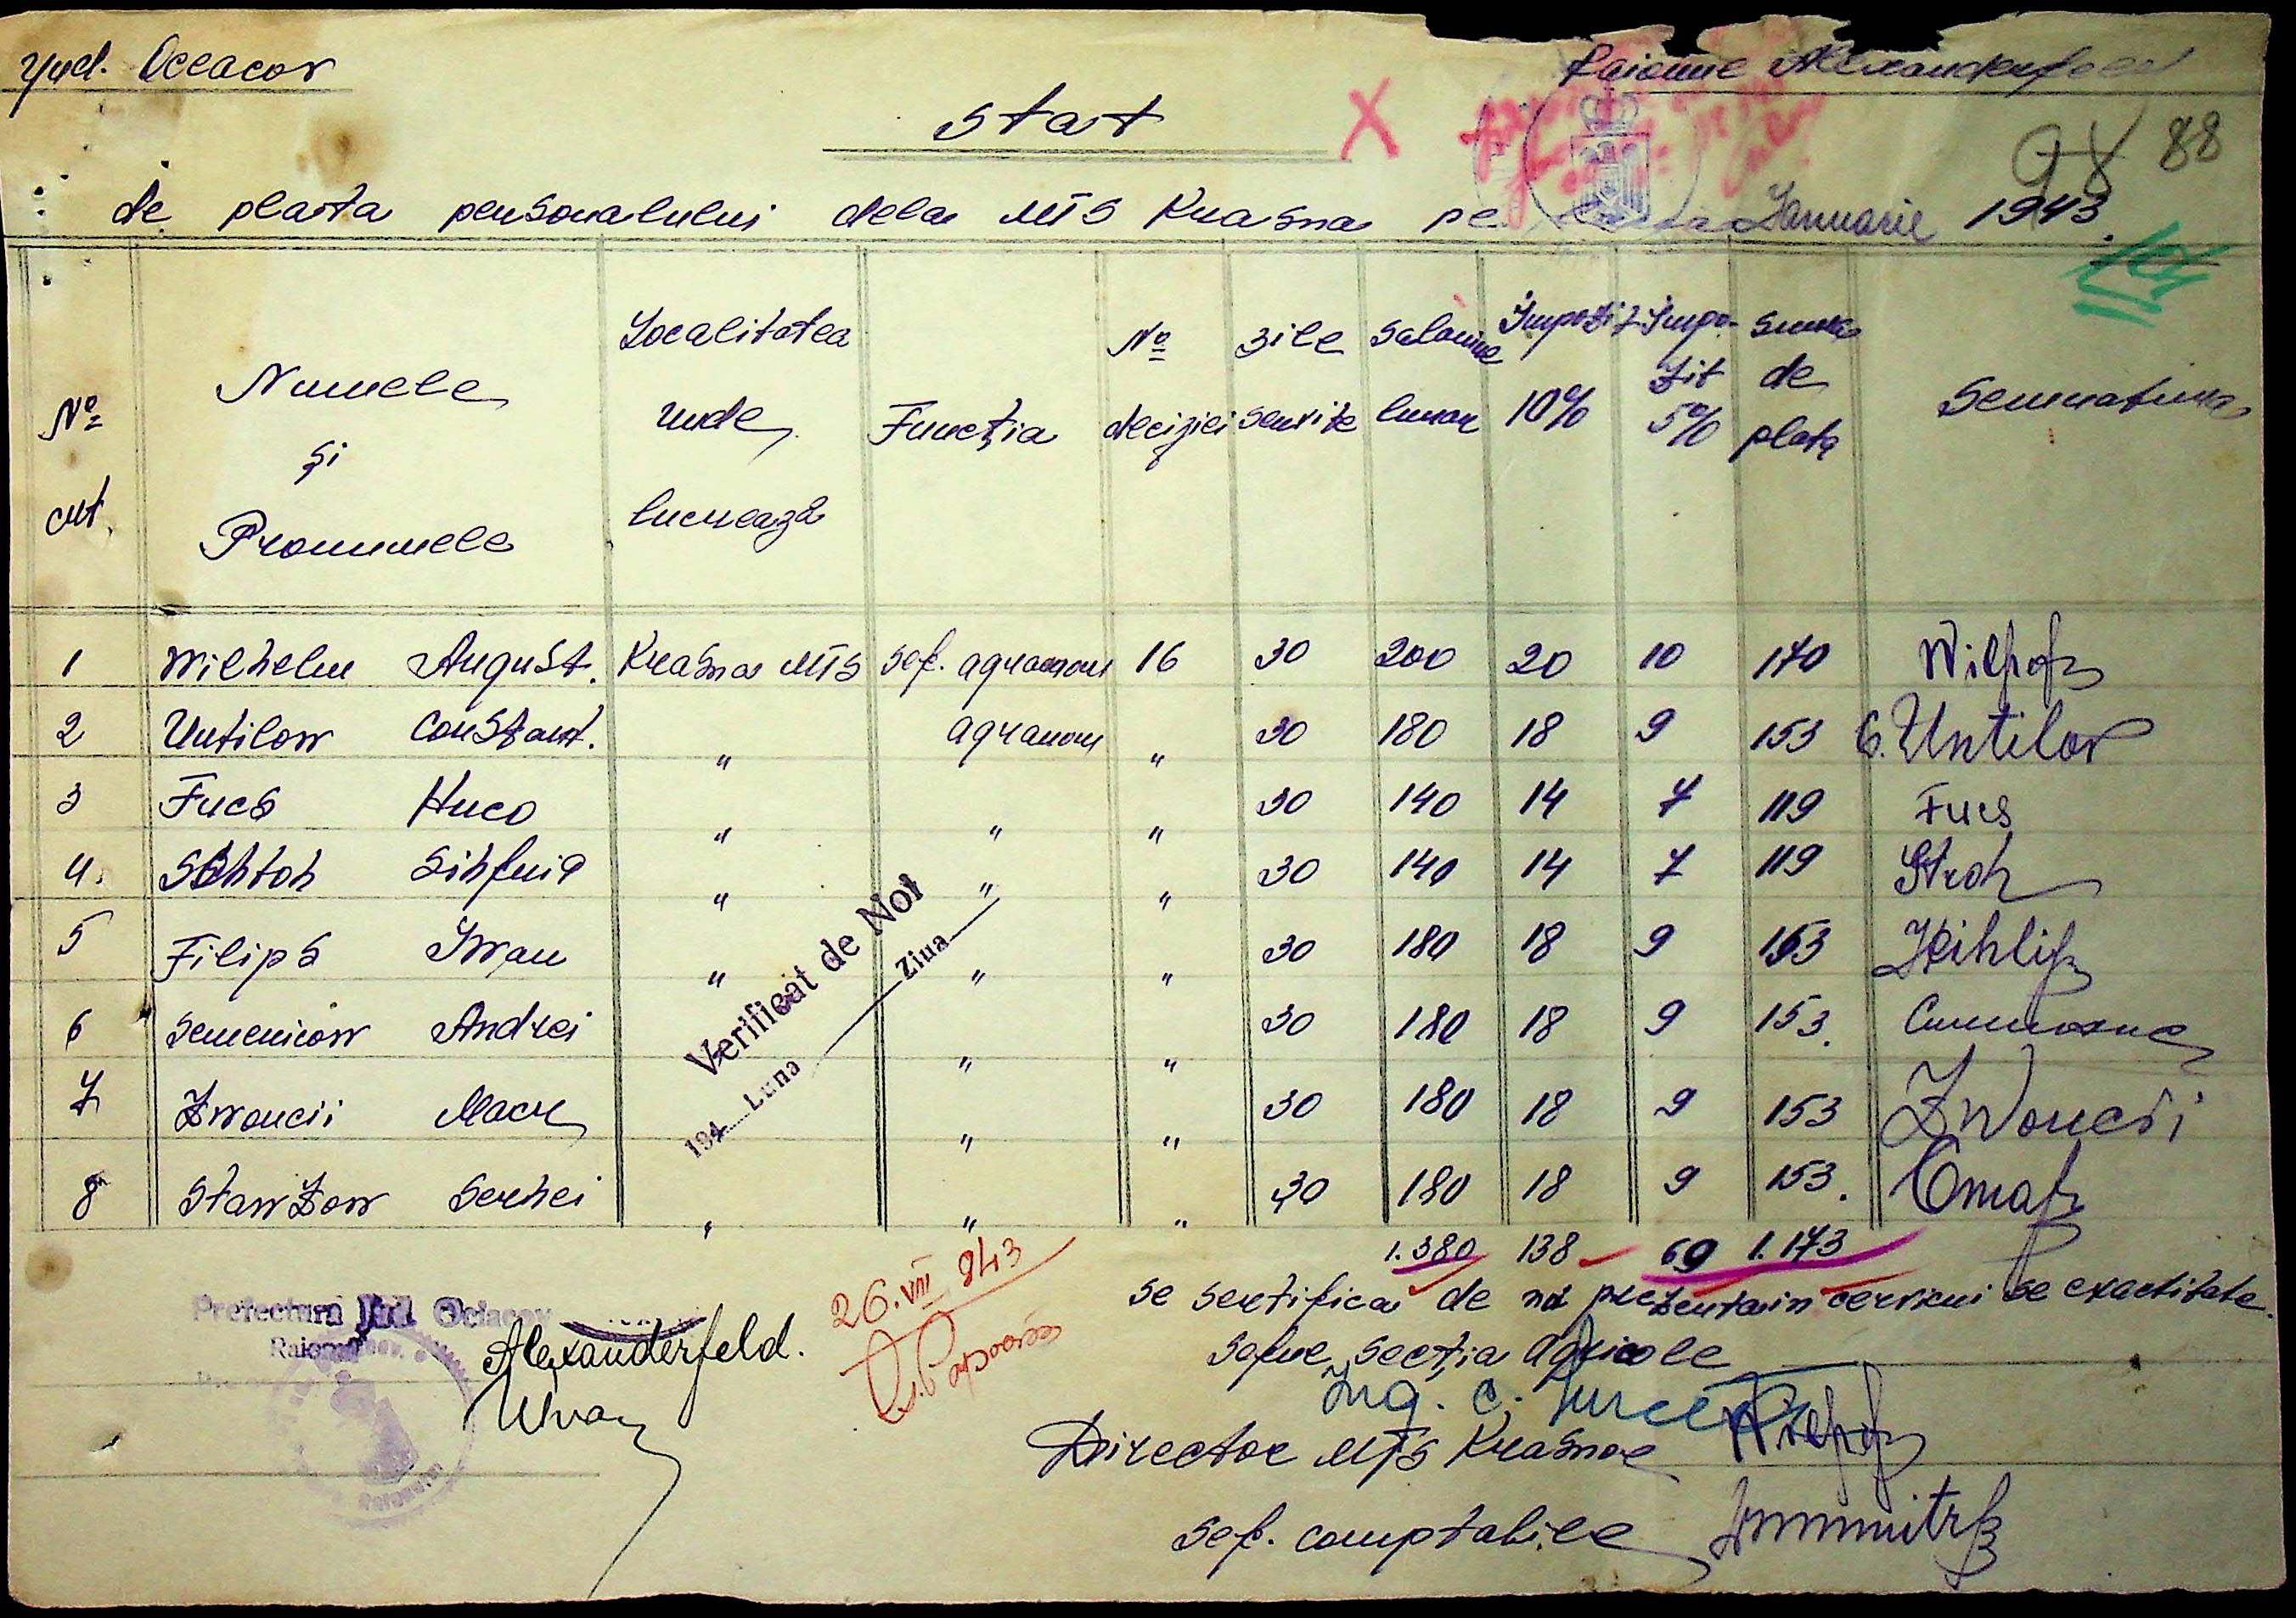 Jud. Oceacov
Raionne Alexanderfeld
Stat
X
98 88
de plata personalului dela MTS Krasna pe Januarie 1943.
№ crt. Numele și Pronumele Localitatea unde lucrează Funcția № deciziei zile servite Salariue lunar Impozit 10% Impo-zit 5% suma de plată Semnatura
1 Wilhelm August. Krasna MTS Șef. agranom 16 30 200 20 10 170 Wilhof
2 Untilow Constant. " agranom " 30 180 18 9 153 C. Untilov
3 Fucs Huco " " " 30 140 14 7 119 Fucs
4. Schtoh Sihfrid " " " 30 140 14 7 119 Stroh
5 Filips Iwan " " " 30 180 18 9 153
6 Semenicow Andrei " " 30 180 18 9 153.
7 Zwoncii Macr " " 30 180 18 9 153 Zwoncii
8 Stawzow Serhei " " " 30 180 18 9 153.
1.380 138 69 1.173
Verificat de Not
194 Luna Ziua
26.VIII 943
se sertifica de noi prezenta in cerviciu se exactitate.
Sefue secția agricole
Ing. C.
Director MTS Krasnoe Wilhof
Sef. comptabilee
Prefectura Jud. Ociacov
Raionul Alexanderfeld.